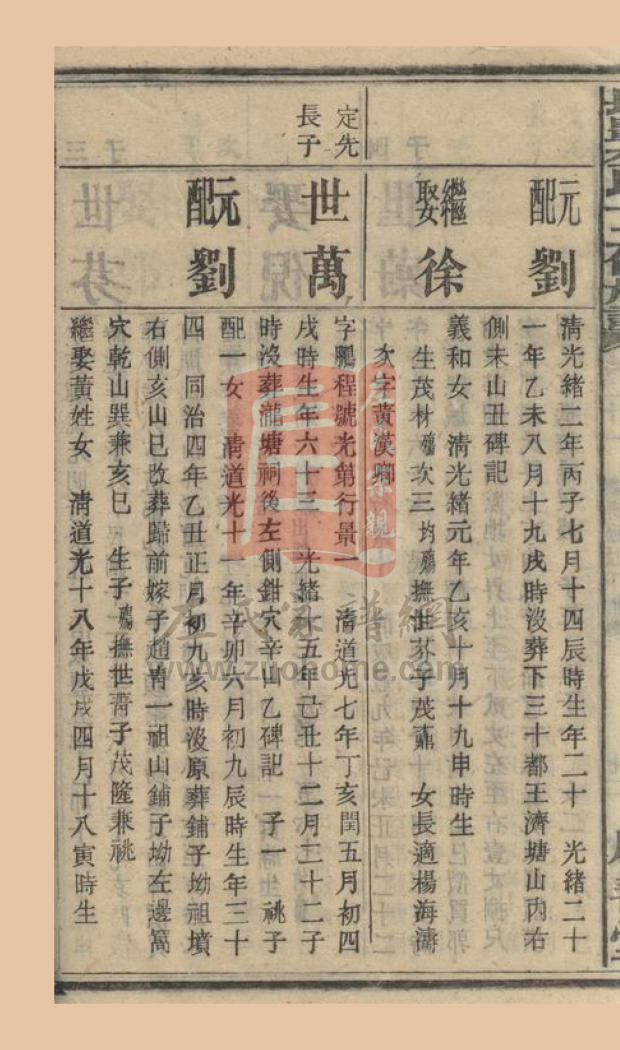 元配 劉
清光緒二年丙子七月十四辰時生年二十 光緒二十
一年乙未八月十九戌時沒葬下三十都王濟塘山內右
側未山丑碑記
繼娶 徐
義和女 清光緒元年乙亥十月十九申時生
生茂材殤次三均殤撫世芬子茂鼒 女長適楊海濤
次字黃漢卿
定先
長子
世萬
字鵬程號光第行景一 清道光七年丁亥閏五月初四
戌時生年六十三 光緒十五年己丑十二月二十二子
時沒葬瀧塘祠後左側鉗穴辛山乙碑記 子一 祧子
元配 劉
配一女 清道光十一年辛卯六月初九辰時生年三十
四 同治四年乙丑正月初九亥時沒原葬鋪子坳祖墳
右側亥山巳改葬歸前嫁子趙 一祖山鋪子坳左邊窩
穴乾山巽兼亥巳 生子殤撫世 子茂隆兼祧
繼娶黃姓女 清道光十八年戊戌四月十八寅時生
左氏家譜網
www.zuojiome.com